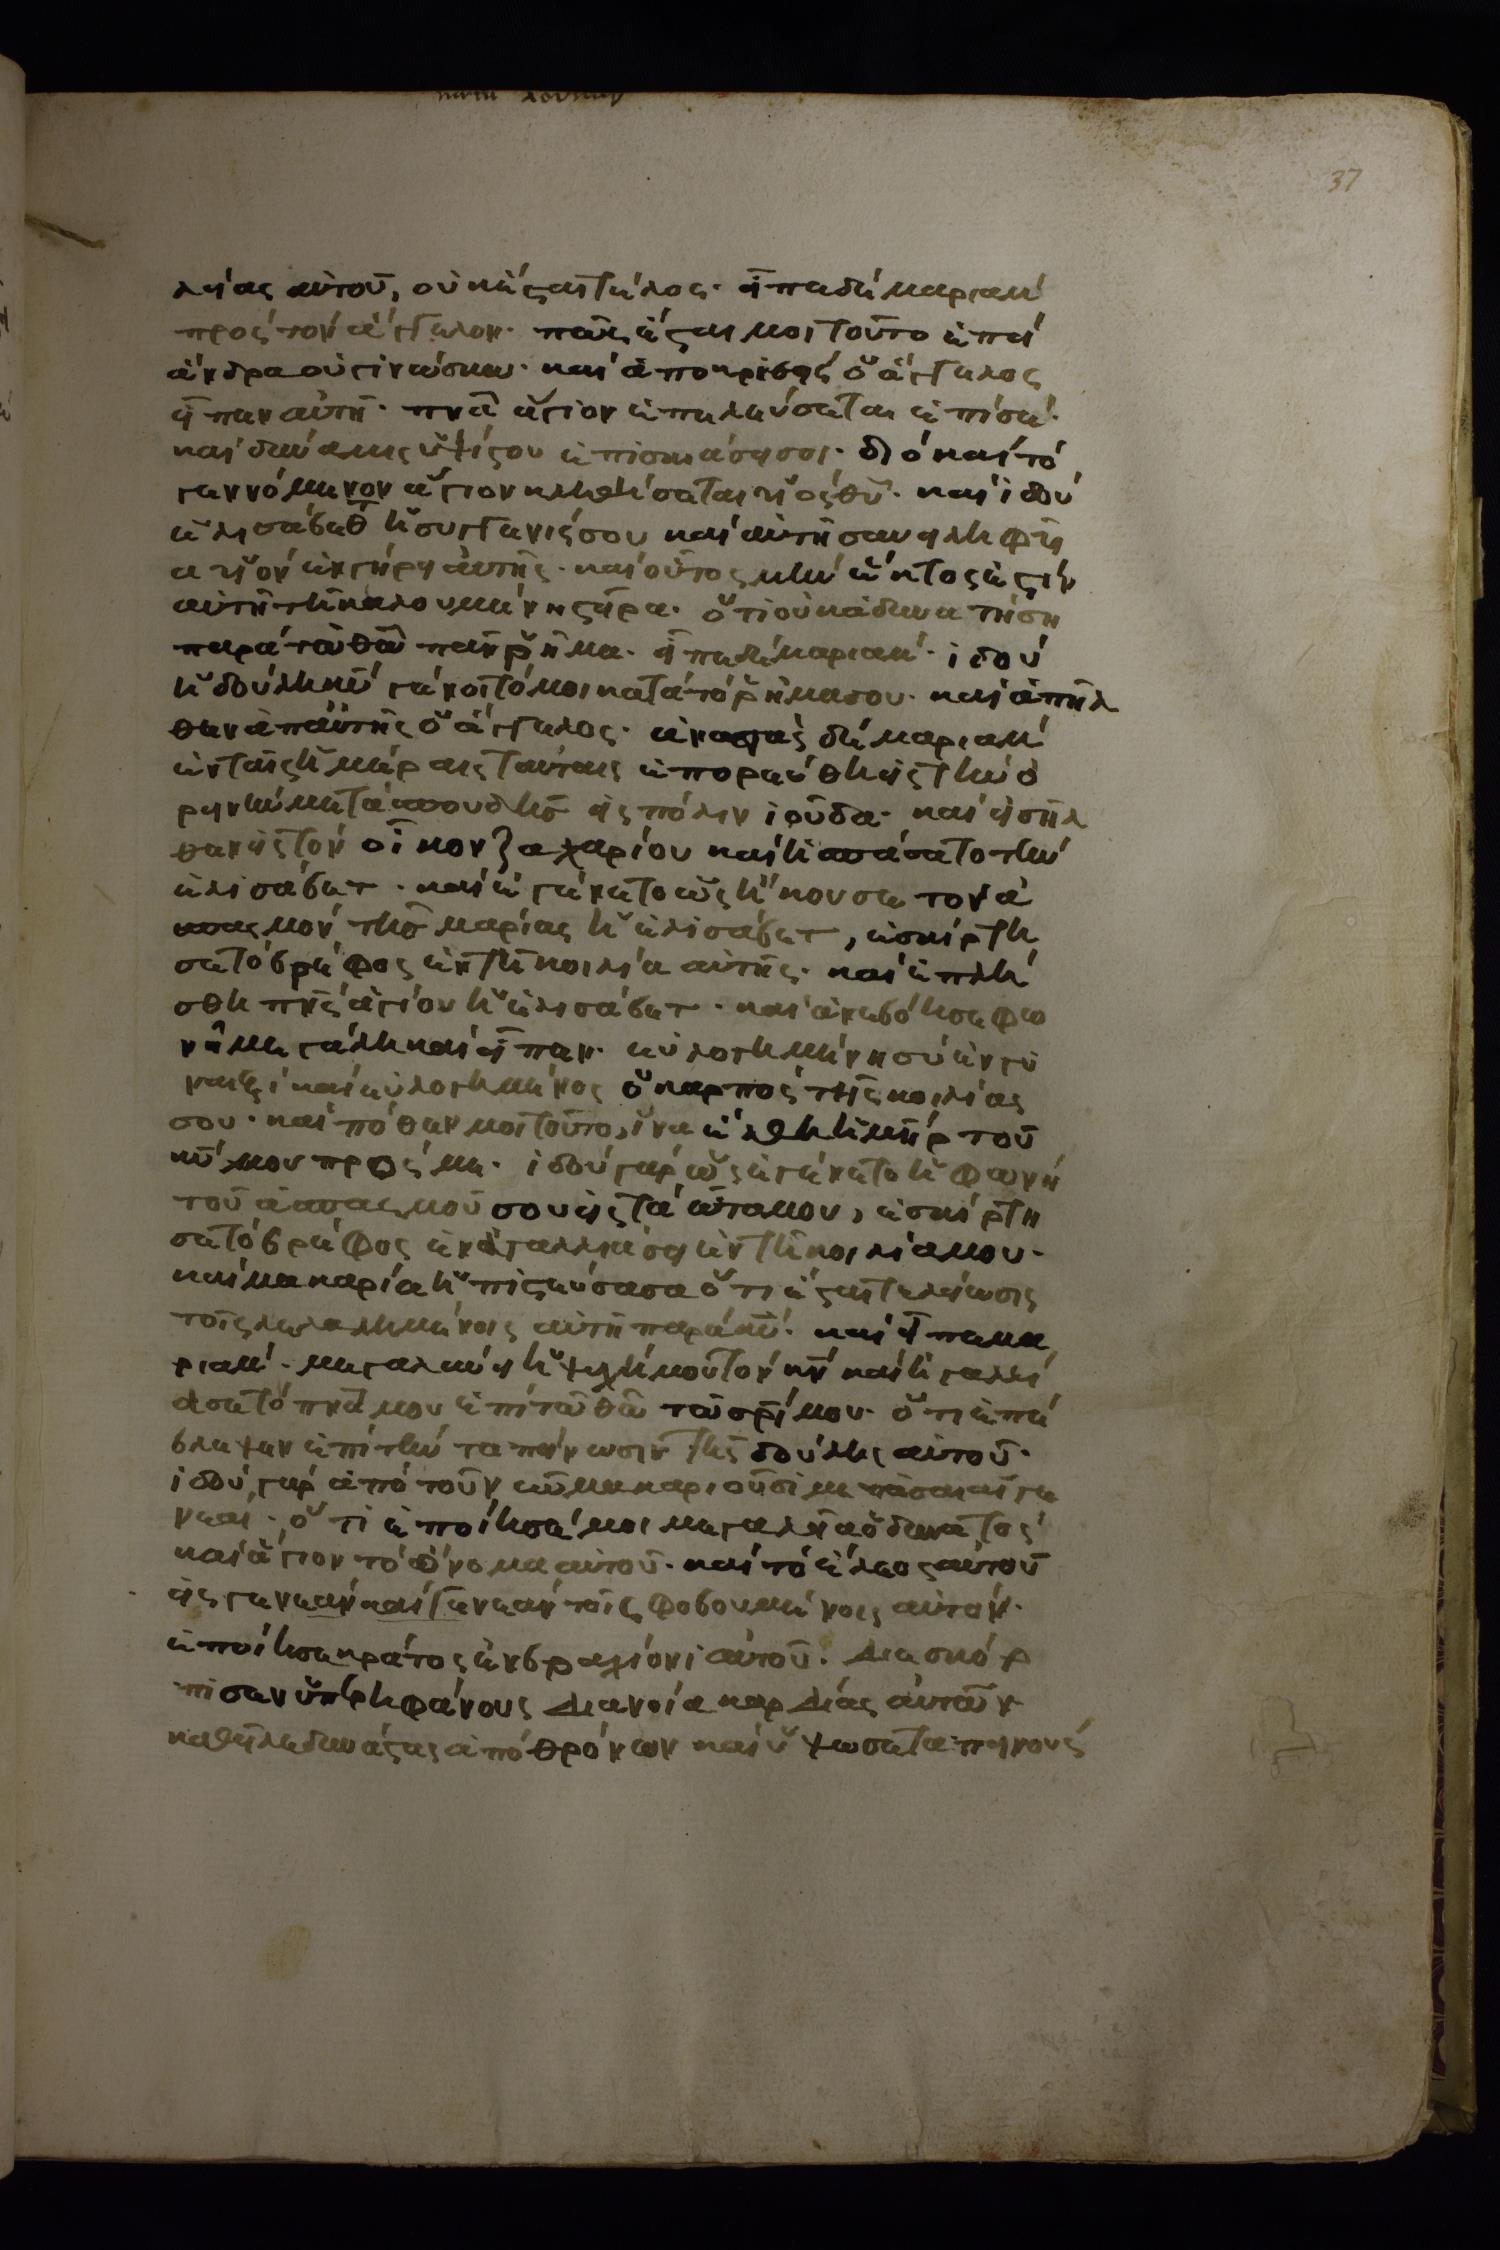 κατὰ λουκαν
37
λείας αὐτοῦ, οὐκ ἔσται τέλος· εἶπε δὲ μαριὰμ
πρὸς τὸν ἄγγελον· πῶς ἔσται μοι τοῦτο ἐπεὶ
ἄνδρα οὐ γινώσκω· καὶ ἀποκριθεὶς ὁ ἄγγελος
εἶπεν αὐτῆ· πνᾶ ἅγιον ἐπελεύσεται ἐπί σε·
καὶ δύναμις ὑψίστου ἐπισκιάσει σοι· διὸ καὶ τὸ
γεννόμενον ἅγιον κληθήσεται υἱὸς θῦ· καὶ ἰδοὺ
ἐλισάβεθ ἡ συγγενίς σου καὶ αὐτὴ συνειληφῆ
α υἱὸν ἐν γήρει αὐτῆς· καὶ οὗτος μὴν ἕκτος ἐστὶν
αὐτῆ τῆ καλουμένη στεῖρα· ὅτι οὐκ ἀδυνατήση
παρὰ τῶ θῶ πᾶν ῥῆμα· εἶπε δὲ μαριὰμ· ἰδοὺ
ἡ δούλη κῦ γένοιτό μοι κατὰ τὸ ῥῆμα σου· καὶ ἀπῆλ
θεν ἀπ' αὐτῆς ὁ ἄγγελος· ἀναστὰς δὲ μαριὰμ
ἐν ταῖς ἡμέραις ταύταις ἐπορεύθη εἰς τὴν ὀ
ρεινὴν μετὰ σπουδῆς εἰς πόλιν ἰούδα· καὶ εἰσῆλ
θεν εἰς τὸν οἶκον ζαχαρίου καὶ ἠσπάσατο τὴν
ἐλισάβετ· καὶ ἐγένετο ὡς ἤκουσε τὸν ἀ
σπασμὸν τῆς μαρίας ἡ ἐλισάβετ, ἐσκίρτη
σε τὸ βρέφος ἐν τῆ κοιλία αὐτῆς· καὶ ἐπλή
σθη πνς ἁγίου ἡ ἐλισάβετ· καὶ ἀνεβόησε φω
νῆ μεγάλη καὶ εἶπεν· εὐλογημένη σὺ ἐν γυ
ναιξὶ καὶ εὐλογημένος ὁ καρπὸς τῆς κοιλίας
σου· καὶ πόθεν μοι τοῦτο, ἵνα ἔλθη ἡ μηρ τοῦ
κῦ μου πρός με· ἰδοὺ γὰρ ὡς ἐγένετο ἡ φωνὴ
τοῦ ἀσπασμοῦ σου εἰς τὰ ὦτα μου, ἐσκίρτη
σε τὸ βρέφος ἐν ἀγαλλιάσει ἐν τῆ κοιλία μου·
καὶ μακαρία ἡ πιστεύσασα ὅτι ἔσται τελείωσις
τοῖς λελαλημένοις αὐτῆ παρὰ κῦ· καὶ εἶπε μα
ριὰμ· μεγαλύνει ἡ ψυχή μου τὸν κν καὶ ἠγαλλί
ασε τὸ πνᾶ μου ἐπὶ τῶ θῶ τῶ σρί μου· ὅτι ἐπέ
βλεψεν ἐπὶ τὴν ταπείνωσιν τῆς δούλης αὐτοῦ·
ἰδοὺ γὰρ ἀπὸ τοῦ νῦν μακαριοῦσί με πᾶσαι αἱ γε
νεαι· ὅτι ἐποίησέ μοι μεγαλεῖα ὁ δυνατὸς
καὶ ἅγιον τὸ ὄνομα αὐτοῦ· καὶ τὸ ἔλεος αὐτοῦ
εἰς γενεὰν καὶ γενεὰν τοῖς φοβουμένοις αὐτόν·
ἐποίησε κράτος ἐν βραχίονι αὐτοῦ· διεσκόρ
πισεν ὑπερηφάνους διανοία καρδίας αὐτῶν·
καθεῖλε δυνάστας ἀπὸ θρόνων καὶ ὕψωσε ταπεινοὺς